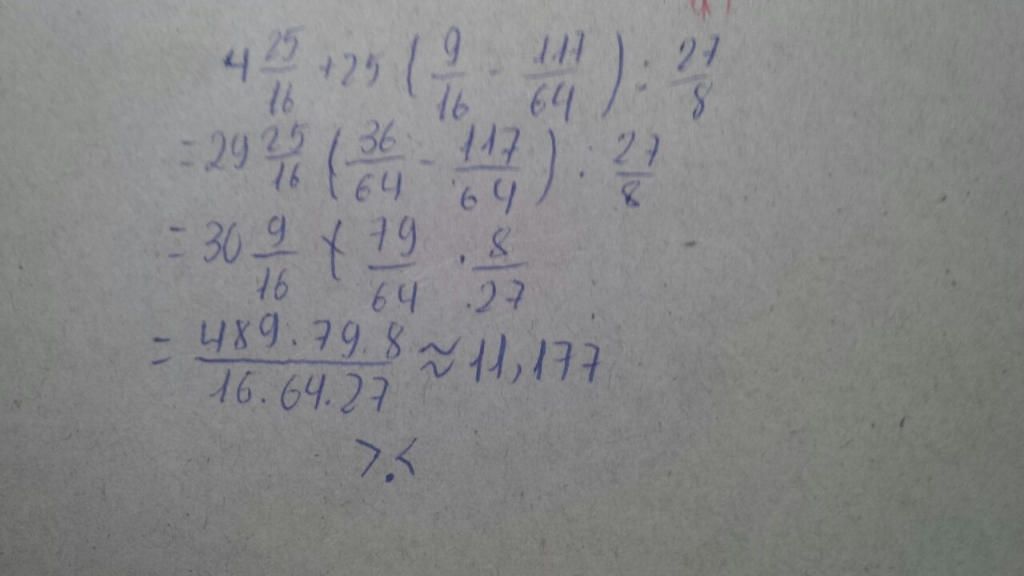 4 25/16 + 25 ( 9/16 - 117/64 ) : 27/8
= 29 25/16 ( 36/64 - 117/64 ) : 27/8
= 30 9/16 × 79/64 . 8/27
= 489.79.8/16.64.27 ≈ 11,177
>.<